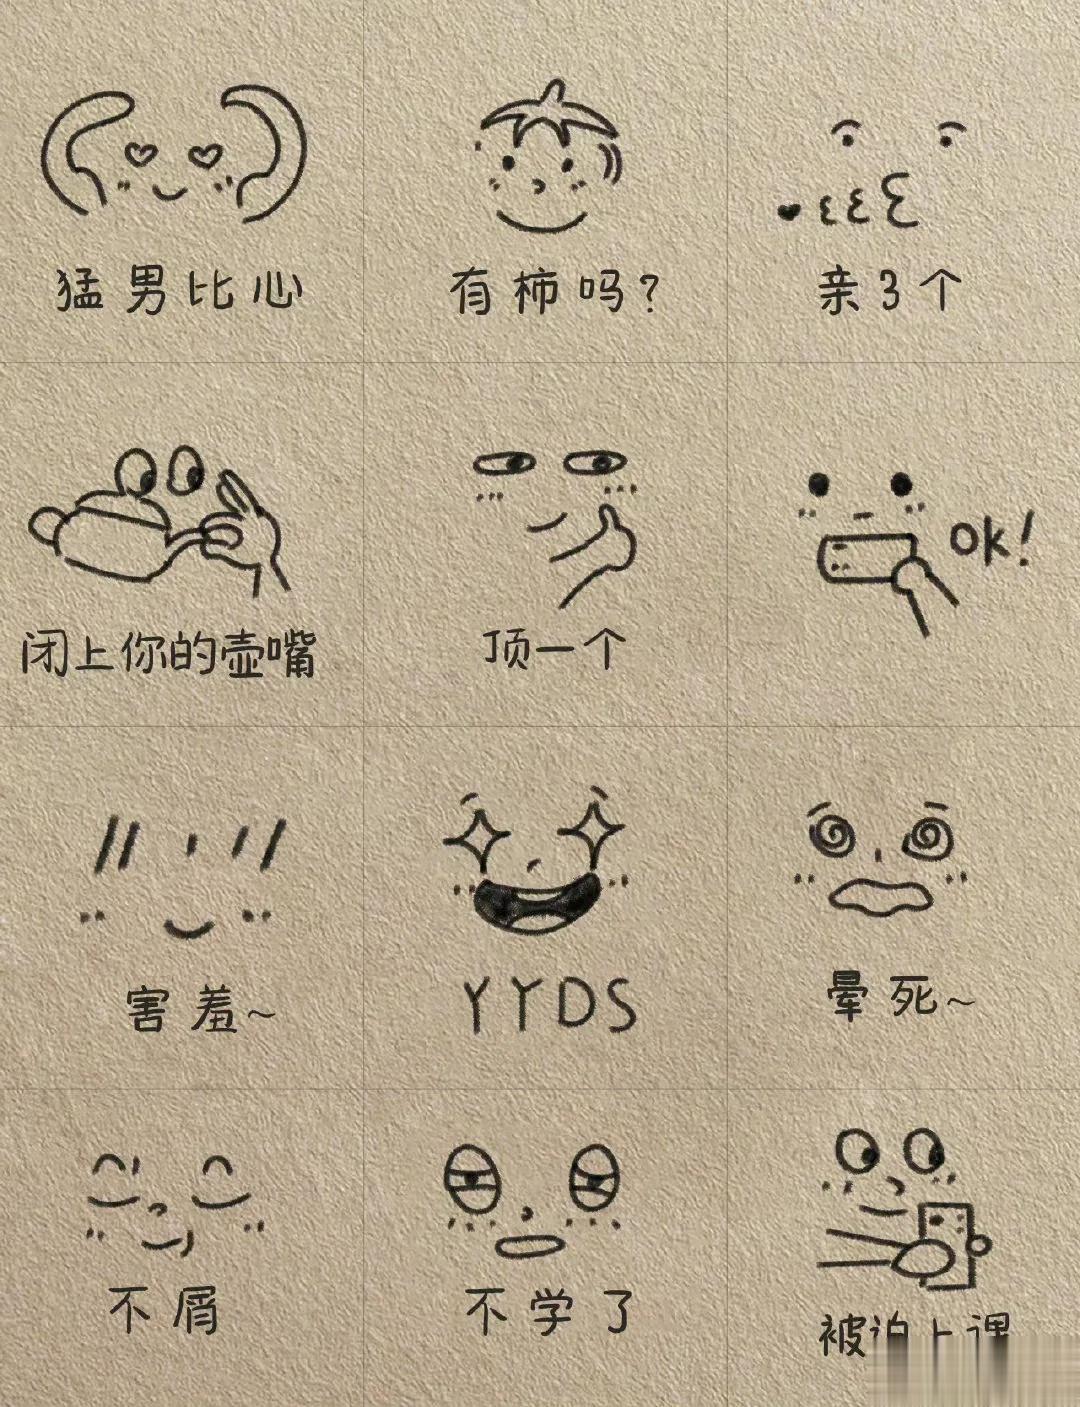 猛男比心
有柿吗？
亲3个
闭上你的壶嘴
顶一个
OK!
害羞~
YYDS
晕死~
不屑
不学了
被迫上课